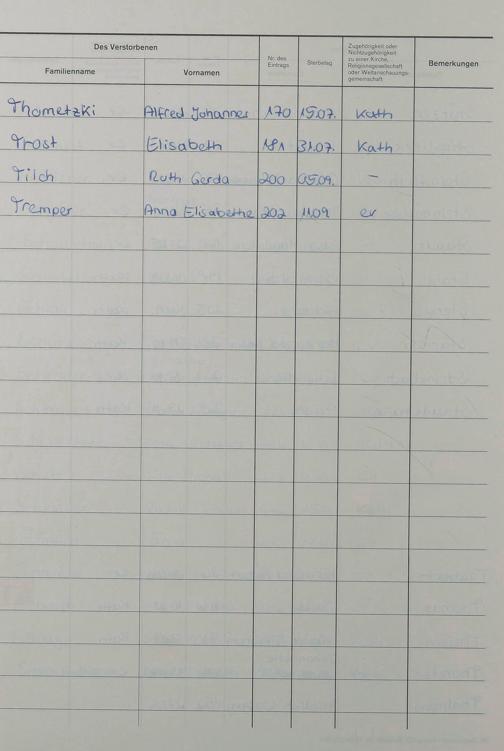 Des Verstorbenen
Familienname Vornamen Nr. des Eintrags Sterbetag Zugehörigkeit oder Nichtzugehörigkeit zu einer Kirche, Religionsgesellschaft oder Weltanschauungsgemeinschaft Bemerkungen
Thometzki Alfred Johannes 170 15.07. Kath
Trost Elisabeth 181 31.07. Kath
Tilch Ruth Gerda 200 05.09. –
Tremper Anna Elisabethe 202 11.09. ev